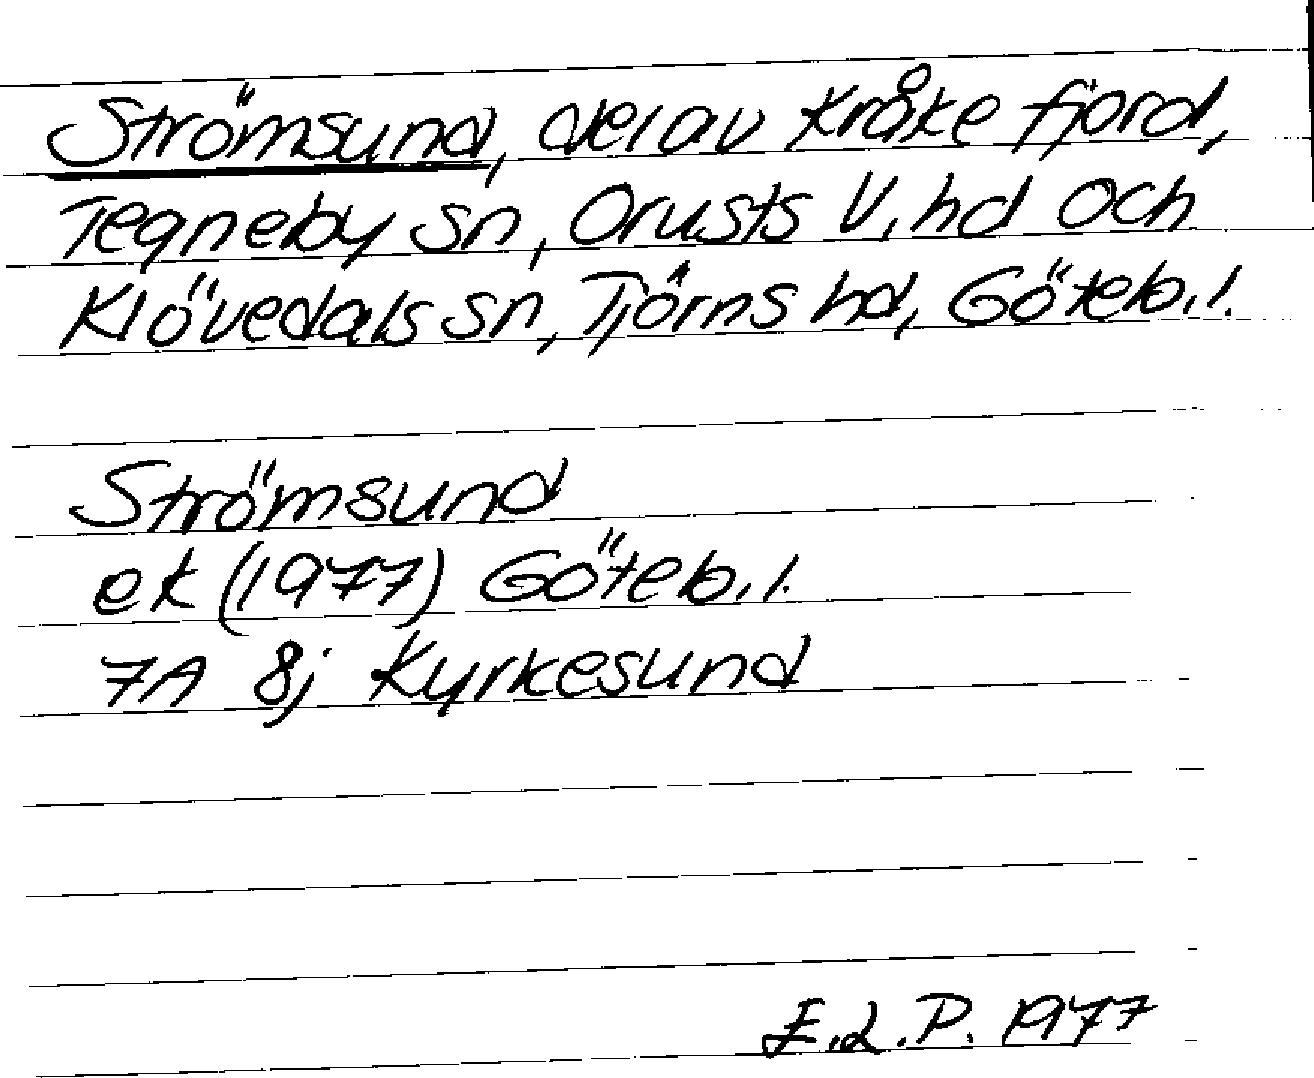 Strömsund, del av Kråke fjord,
Tegneby sn, Orusts V. hd och
Klövedals sn, Tjörns hd, Göteb. l.
Strömsund
ek (1977) Göteb. l.
7A 8j Kyrkesund
E.L.P. 1977